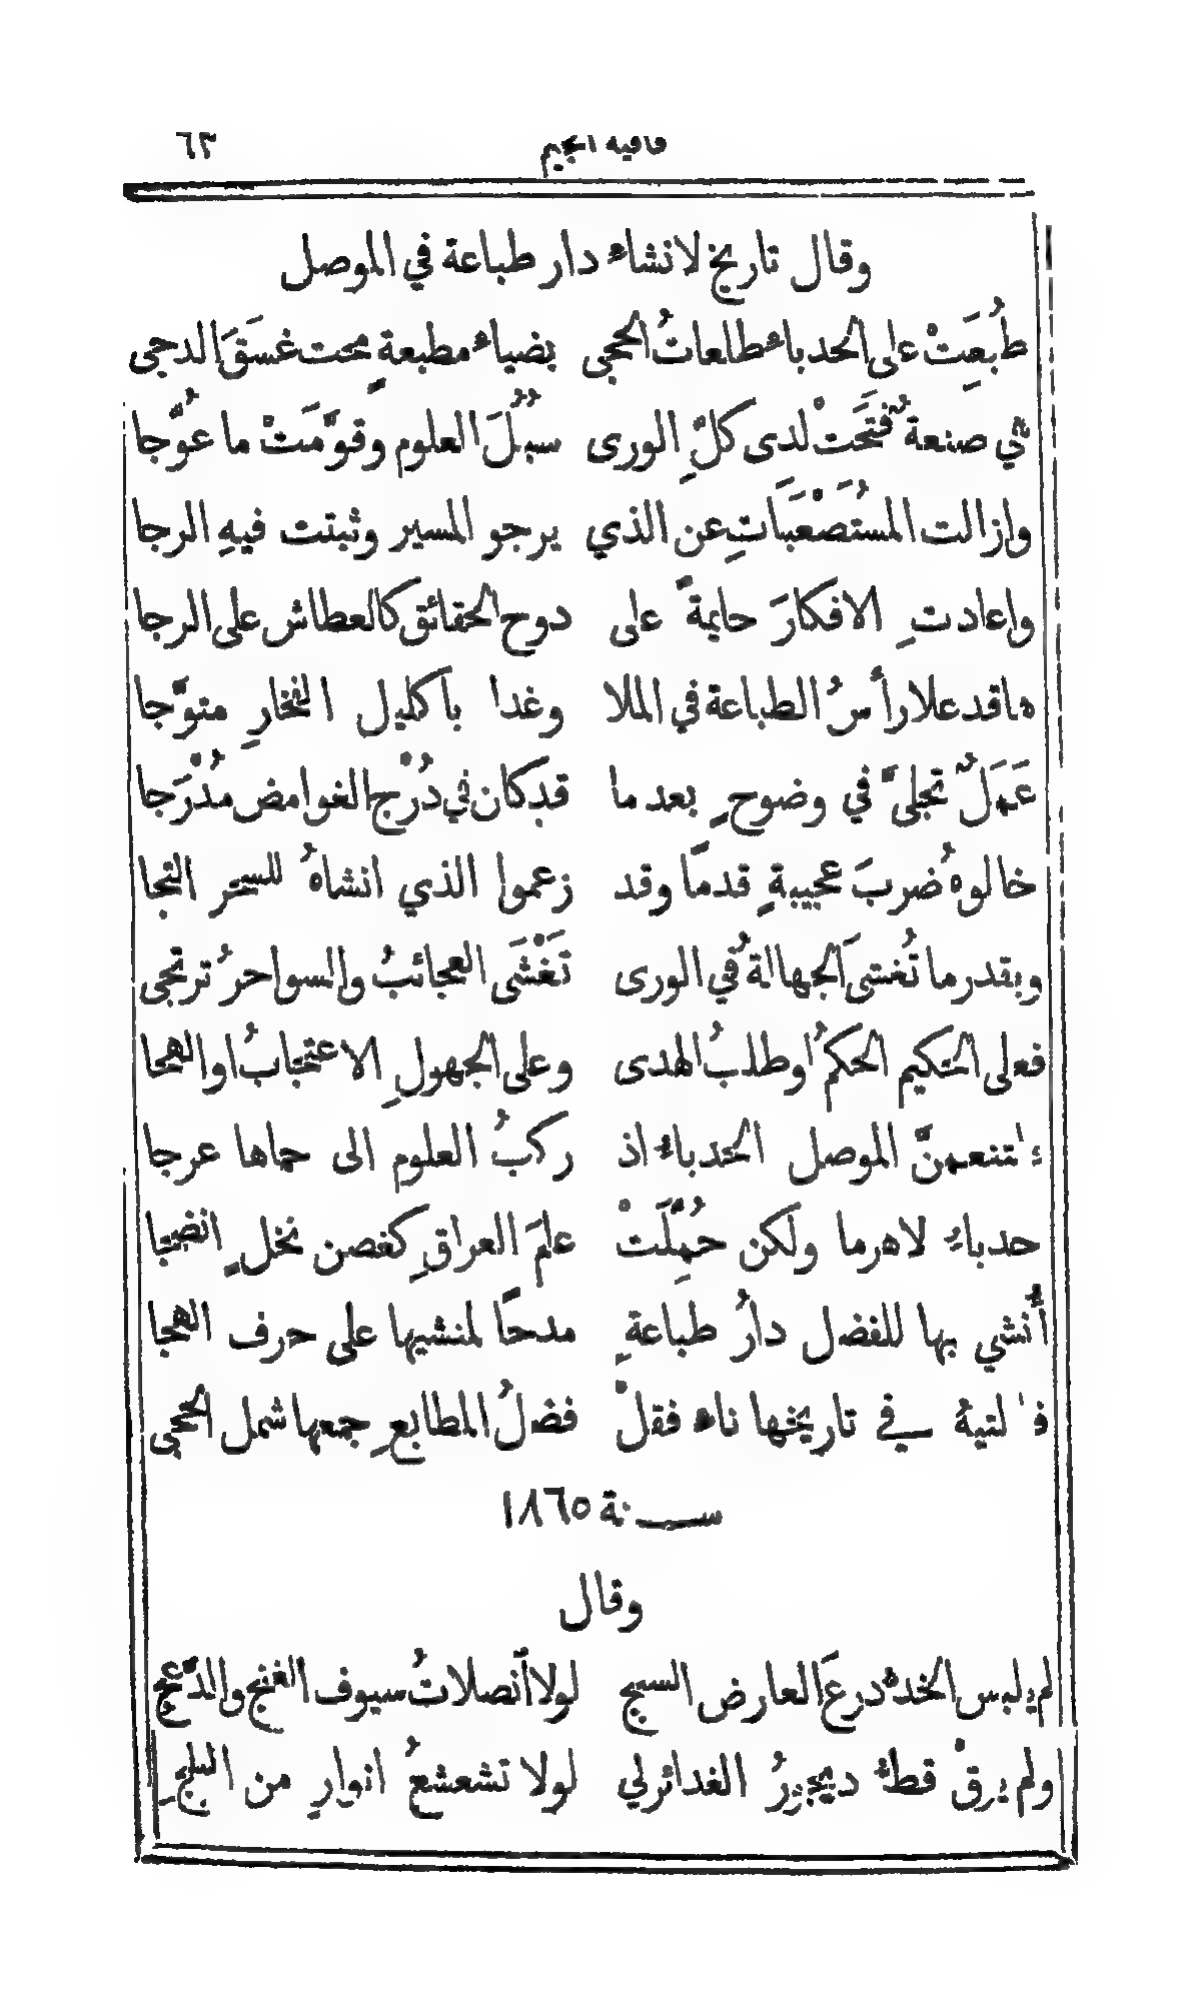 قافية الجيم ٦٣
وقال تاريخ لانشاء دار طباعة في الموصل
طُبعَتْ على الحدباء طالعاتُ الحجى بضياء مطبعةٍ محت غسَقَ الدجى
في صنعةٌ فتَحَتْ لدى كلِّ الورى سبُلَ العلوم وقوَّمَتْ ما عُوِّجا
وازالت المستُصَعَبَاتِ عن الذي يرجو المسير وثبتت فيهِ الرجا
واعادتِ الافكارَ حايمةً على دوح الحقائق كالعطاش على الرجا
ها قد علا رأسُ الطباعة في الملا وغدا باكليل الفخارِ متوَّجا
عَمَلٌ تجلىَّ في وضوحٍ بعد ما قد كان في دُرْج الغوامض مُدْرَجا
خالوهُ ضربَ عجيبةٍ قدمًا وقد زعموا الذي انشاهُ للسحر التجا
وبقدر ما تُغشىَ الجهالةُ في الورى تَغْشَى العجائبُ والسواحرُ ترتجى
فعلى الحكيم الحكمُ اوطلبُ الهدى وعلى الجهولِ الاعتجابُ او الهجا
فلتنعمنَّ الموصل الحدباءُ اذ ركبُ العلوم الى حماها عرجا
حدباءُ لا هرما ولكن حُمِّلَتْ علمَ العراقِ كغصن نخلٍ انضجا
أُنشي بها للفضل دارُ طباعةٍ مدحًا لمنشيها على حرف الهجا
فالتيهُ في تاريخها ناء فقلْ فضلُ المطابعِ جمعها شمل الحجى
سنة ١٨٦٥
وقال
لم يلبس الخدُّ درعَ العارض السبج لولا أنصلاتُ سيوف الغنج والدَّعج
ولم يرقْ قطُّ ديجيرُ الغدائر لي لولا تشعشعُ انوارٍ من البلجِ